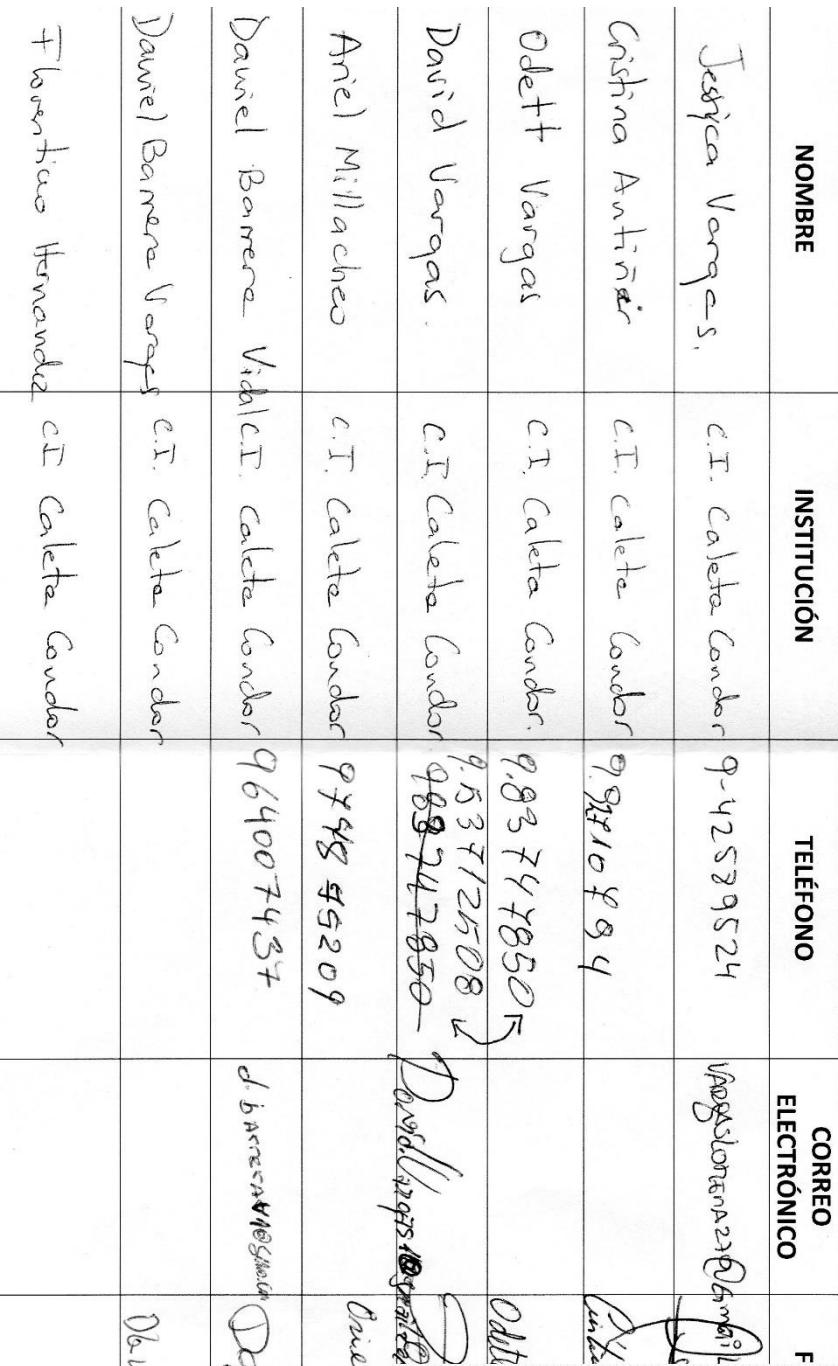 NOMBRE INSTITUCIÓN TELÉFONO CORREO ELECTRÓNICO F
Jessica Vargas. C.I. Caleta Condor 9-42589524
Cristina Antiñir C.I. Caleta Condor
Odett Vargas C.I. Caleta Condor. 9.83747850 Odett
David Vargas. C.I. Caleta Condor 9.53712508 989747850
Ariel Millacheo C.I. Caleta Condor 9748 45209
Daniel Barrera Vidal C.I. Caleta Condor 964007437
Daniel Barrera Vargas C.I. Caleta Condor
Florentino Hernandez C.I Caleta Condor